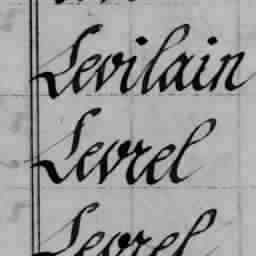 Levilain
Levrel
Levrel